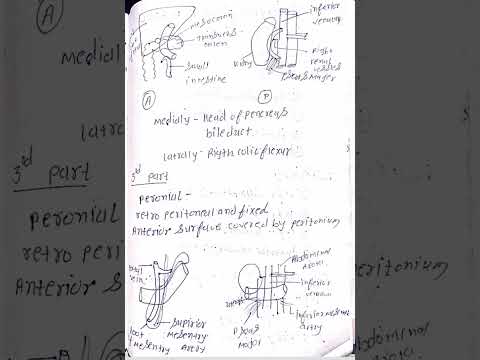 A
mesocolon
Transvers
colon
small
intestine
inferior
venacava
Right
renal
vessels
Psoas Major
Kidney
A
P
Medialy - Head of pencreas
bileduct
Latrally - Rigth colic flexur
3rd part
Peronial -
retro peritoneal and fixed
Anterior surface covered by peritonium
Root
Mesentry
Supirior
Mesentry
Artry
Psoas
Major
Abdominal
Aorta
inferior
inferior mesentry
artry
Medial
Latrall
3rd
Part
Peronial
retro peri
Anterior s
peritonium
Abdominal